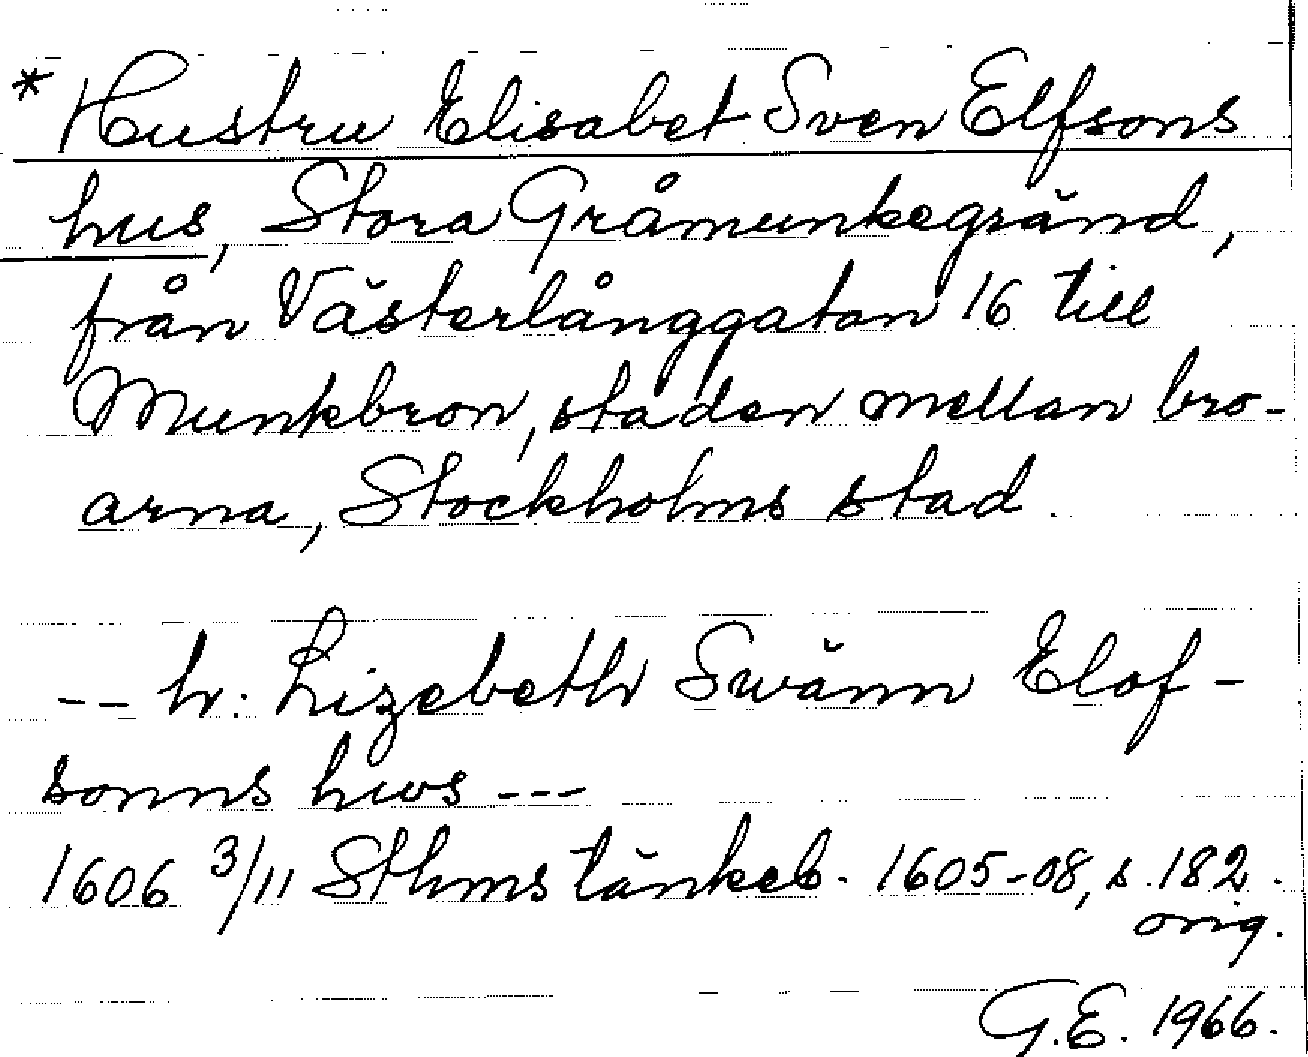 * Hustru Elisabet Sven Elfsons
hus, Stora Gråmunkegränd,
från Västerlånggatan 16 till
Munkbron, staden mellan bro-
arna, Stockholms stad.
-- h. Lizebeth Swänn Elof-
sonns hws ---
1606 3/11 Sthms tänkeb. 1605-08, s. 182.
orig.
G.E. 1966.